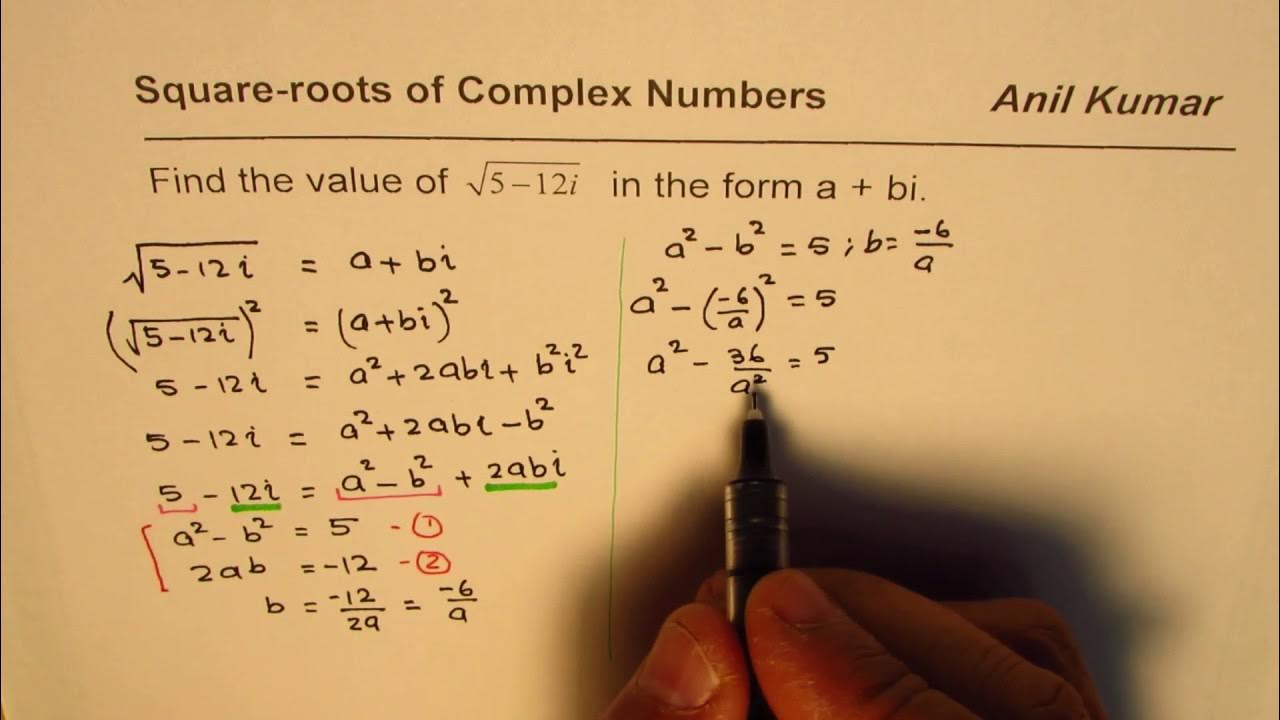 Square-roots of Complex Numbers Anil Kumar
Find the value of √(5−12i) in the form a + bi.
√(5-12i) = a+bi
(√(5-12i))² = (a+bi)²
5-12i = a²+2abi+b²i²
5-12i = a²+2abi-b²
5-12i = a²-b²+2abi
a²-b² = 5 -①
2ab = -12 -②
b = -12/2a = -6/a
a²-b² = 5 ; b= -6/a
a²-(-6/a)² = 5
a²-36/a² = 5